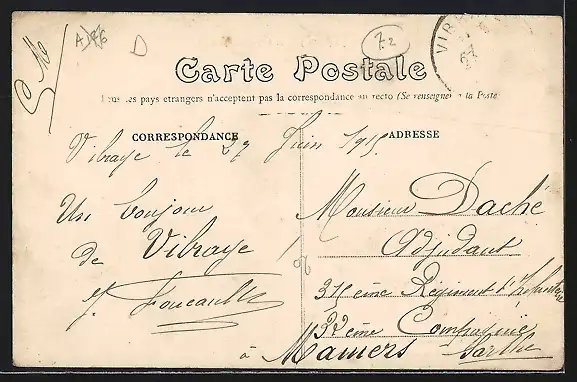 S M
A176
D
72
VIBRAYE
Carte Postale
Tous les pays etrangers n'acceptent pas la correspondance au recto (Se renseigner à la Poste
CORRESPONDANCE
ADRESSE
Vibraye le 27 Juin 1915
Un bonjour
de Vibraye !
Foucault
Monsieur Daché
Adjudant
315 eme Regiment d'Infanterie
32 eme Compagnie
à Mamers
Sarthe